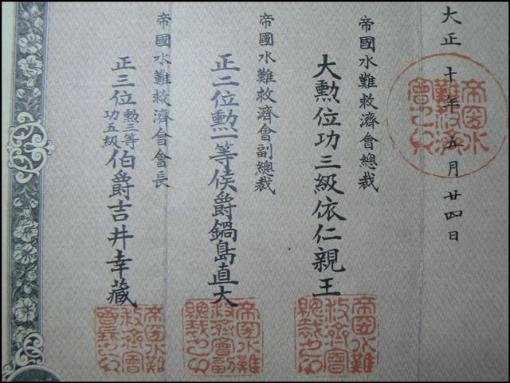 大正十年五月廿四日
帝國水難救濟會總裁
大勲位功三級依仁親王
帝國水難救濟會副總裁
正二位勲一等侯爵鍋島直大
帝國水難救濟會會長
正三位勲三等功五級伯爵吉井幸藏
帝國水難救濟會之印
帝國水難救濟會總裁之印
帝國水難救濟會副總裁之印
帝國水難救濟會會長之印